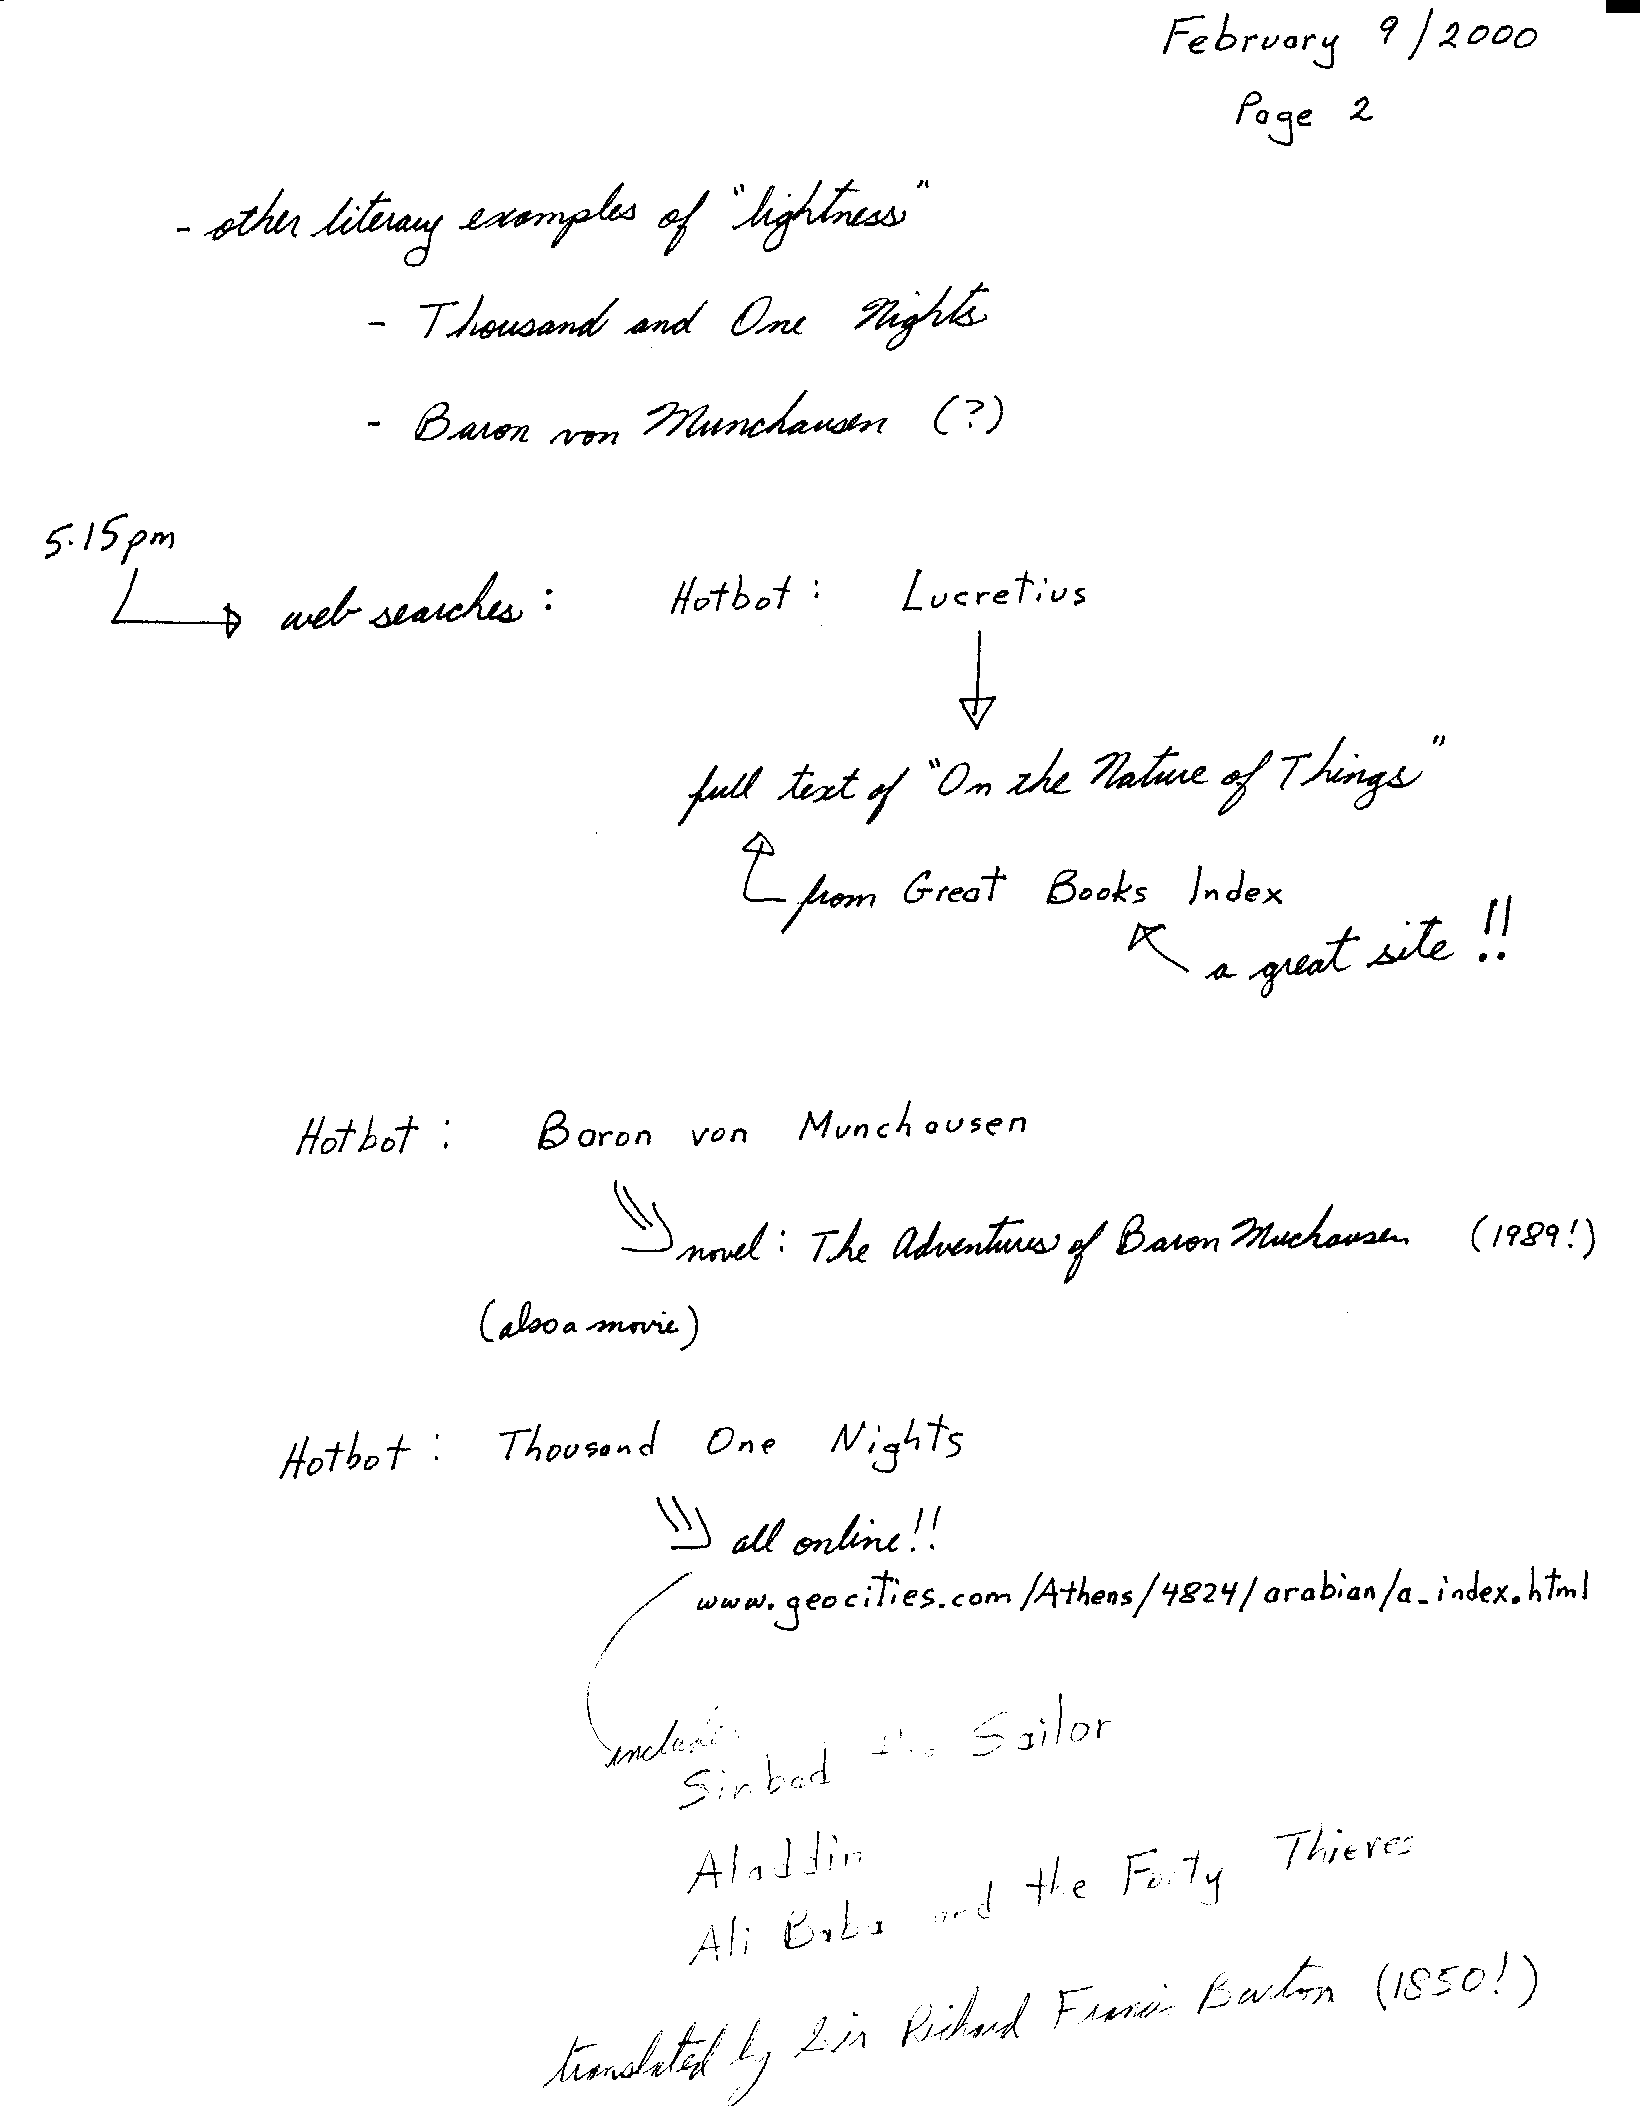 February 9/2000
Page 2
- other literary examples of "lightness"
- Thousand and One Nights
- Baron von Munchausen (?)
5:15pm
web searches: Hotbot: Lucretius
full text of "On the Nature of Things"
from Great Books Index
a great site !!
Hotbot: Baron von Munchausen
novel: The Adventures of Baron Muchausen (1989!)
(also a movie)
Hotbot: Thousand One Nights
all online!!
www.geocities.com/Athens/4824/arabian/a_index.html
Sinbad the Sailor
Aladdin
Ali Baba and the Forty Thieves
translated by Sir Richard Francis Burton (1850!)